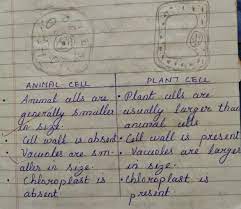 ANIMAL CELL PLANT CELL
• Animal cells are • Plant cells are
generally smaller usually larger than
in size. animal cells
• Cell wall is absent • Cell wall is present
• Vacuoles are sm- • Vacuoles are larger
aller in size. in size.
• Chloroplast is • Chloroplast is
absent present